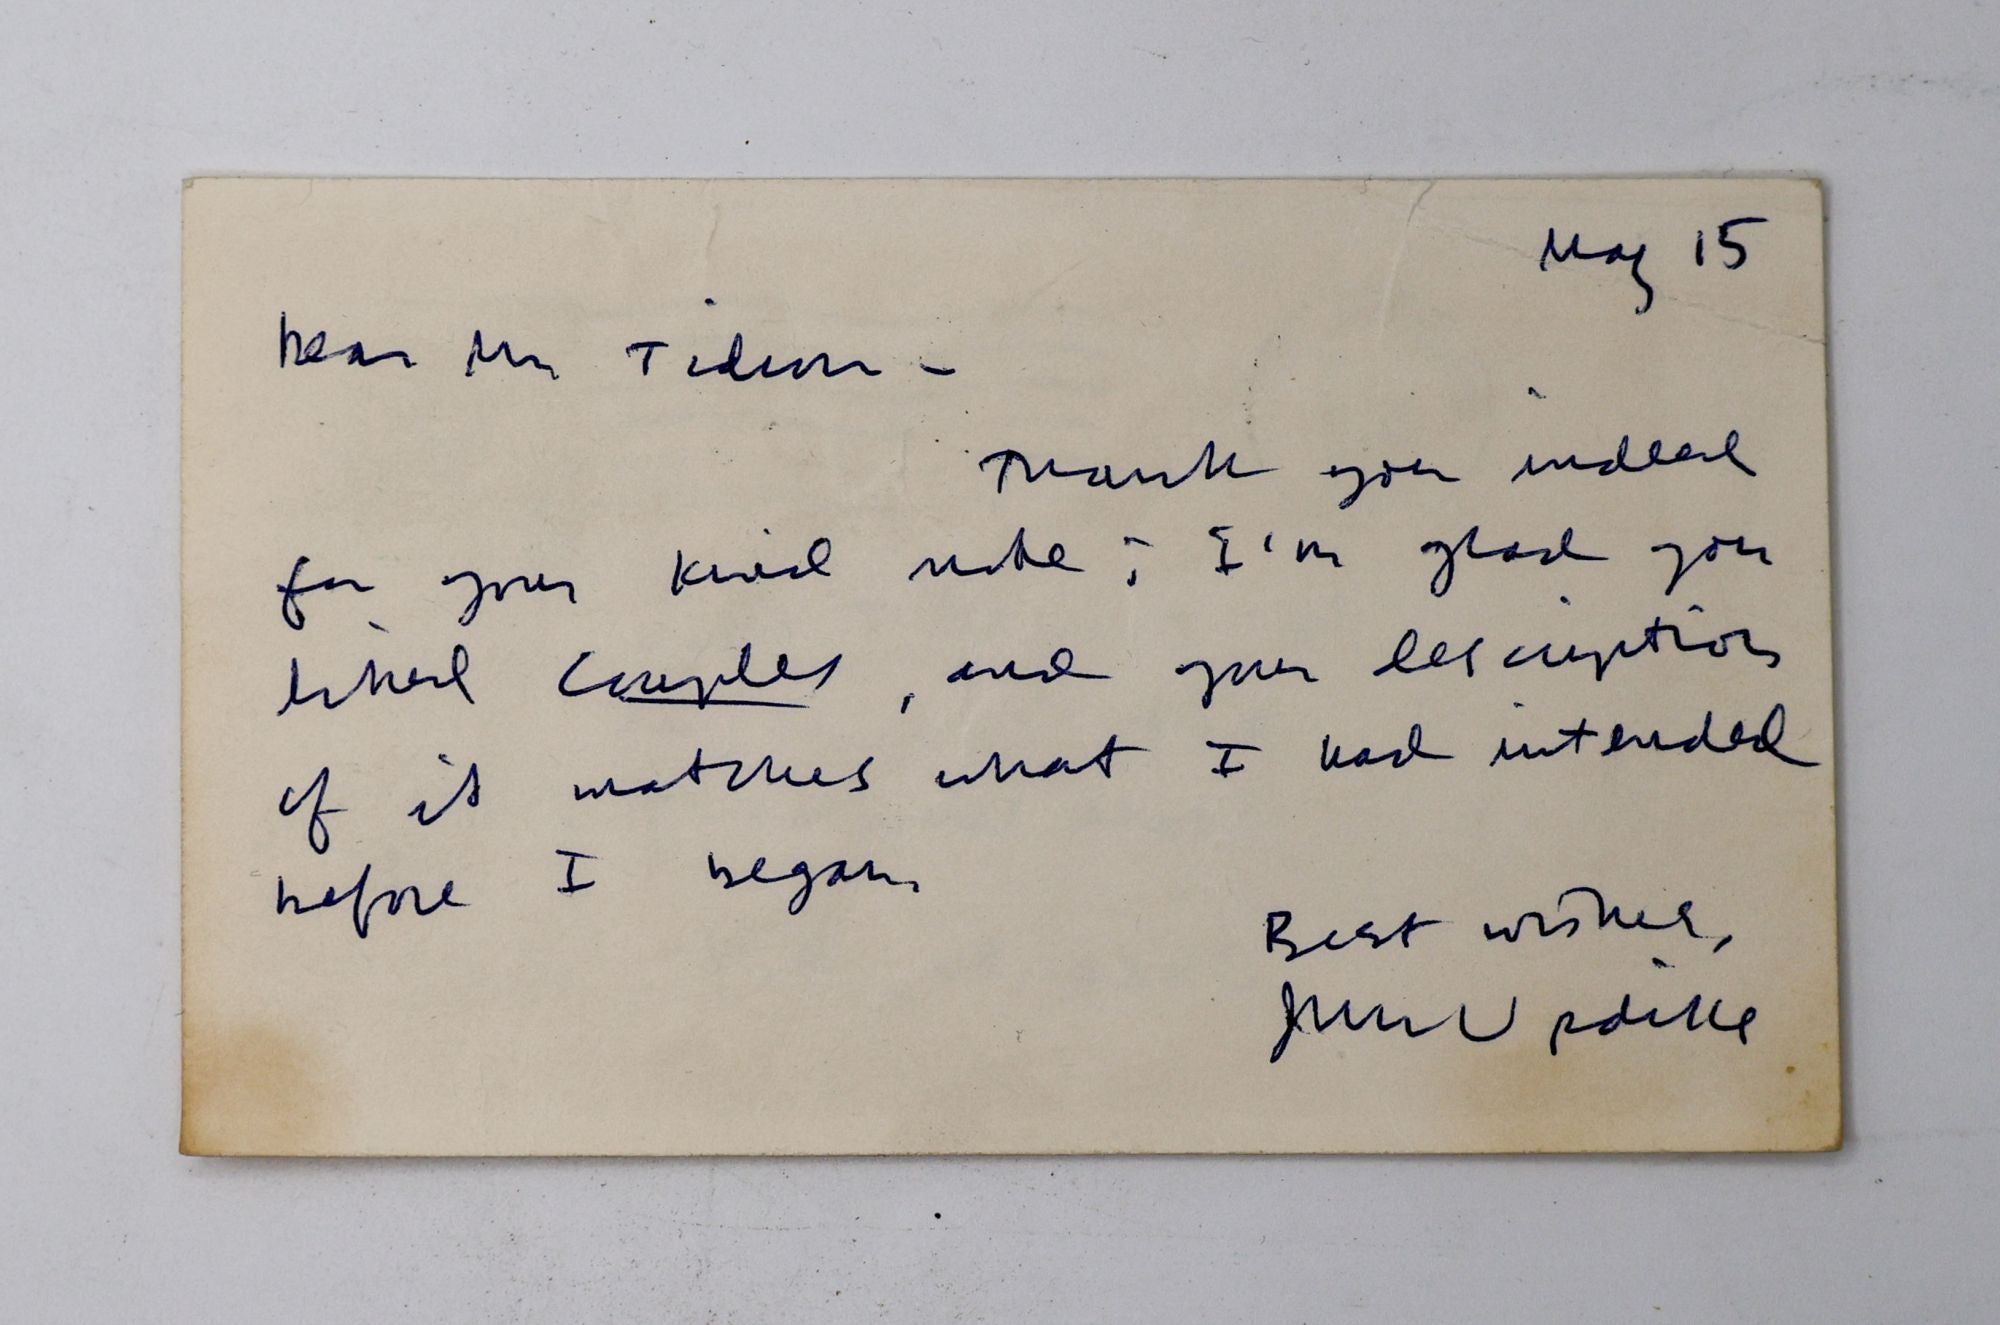 May 15
Dear Mr Tidson –
Thank you indeed
for your kind note; I'm glad you
liked Couples, and your description
of it matches what I had intended
before I began.
Best wishes,
John Updike